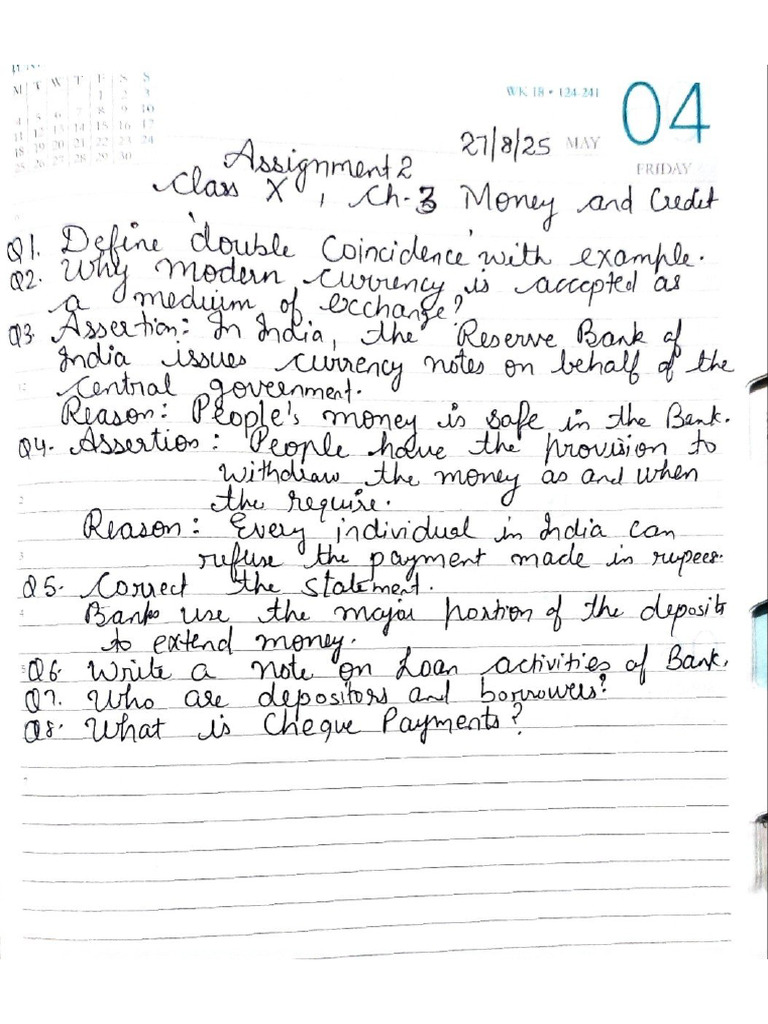 M T W T F S S
1 2 3
4 5 6 7 8 9 10
11 12 13 14 15 16 17
18 19 20 21 22 23 24
25 26 27 28 29 30
WK 18 • 124-241
04
27/8/25 MAY
FRIDAY
Assignment 2
Class X , Ch-3 Money and Credit
Q1. Define 'double coincidence' with example.
Q2. Why modern currency is accepted as
a meduim of exchange?
Q3. Assertion: In India, the Reserve Bank of
India issues currency notes on behalf of the
central government.
Reason: People's money is safe in the Bank.
Q4. Assertion: People have the provision to
withdraw the money as and when
the require.
Reason: Every individual in India can
refuse the payment made in rupees.
Q5. Correct the statement.
Banks use the major portion of the deposits
to extend money.
Q6. Write a note on Loan activities of Bank.
Q7. Who are depositors and borrowers?
Q8. What is Cheque Payments?